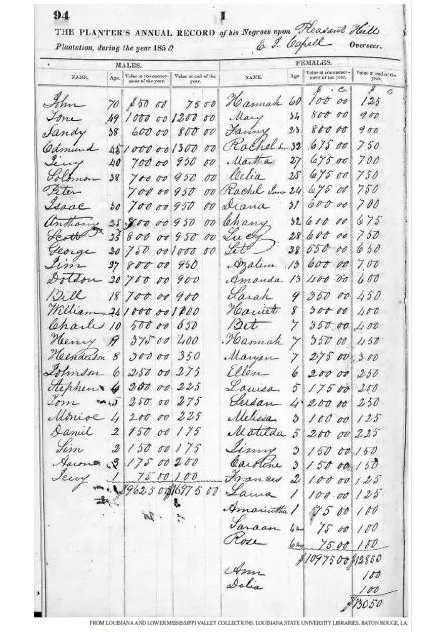 94 I
THE PLANTER'S ANNUAL RECORD of his Negroes upon Pleasant Hill
Plantation, during the year 1850 E. J. Capell Overseer.
MALES. FEMALES.
NAME. Age. Value at commencement of the year. Value at end of the year. NAME. Age Value at commencement of the year. Value at end of the year.
John 70 50 00 75 00 Hannah 60 100 00 125
Tone 49 1000 00 1200 00 Mary 34 800 00 900
Sandy 38 600 00 800 00 Fanny 23 800 00 900
Edmund 45 1000 00 1300 00 Rachel 32 675 00 750
40 700 00 950 00 Martha 27 675 00 700
Solomon 38 700 00 950 00 Celia 25 675 00 750
Peter 700 00 950 00 Rachel 24 675 00 750
Isaac 30 700 00 950 00 Diana 31 600 00 700
Anthony 25 800 00 950 00 Chany 32 600 00 675
Scott 25 600 00 950 00 Lucy 28 600 00 750
George 20 750 00 1000 00 28 550 00 650
Jim 27 800 00 950 Azaline 13 600 00 700
Dotson 20 700 00 900 Amanda 13 400 00 600
Bill 18 700 00 900 Sarah 9 350 00 450
William 24 1000 00 1000 Harriet 8 300 00 400
Charles 10 500 00 650 Bet 7 350 00 400
Henry 9 375 00 400 Hannah 7 350 00 450
Henderson 8 300 00 350 Maryan 7 275 00 300
Johnson 6 250 00 275 Ellen 6 200 00 250
Stephen 4 200 00 225 Louisa 5 175 00 200
Tom 5 250 00 275 Susan 4 200 00 250
Monroe 4 200 00 225 Melissa 3 100 00 125
Daniel 2 150 00 175 Matilda 5 200 00 225
Sim 2 150 00 175 Jinny 3 150 00 150
Aaron 3 175 00 200 Caroline 3 150 00 150
1 75 00 100 Frances 2 100 00 125
$9625 00 $16975 00 Laura 100 00 125
Amarintha 1 75 00 100
75 00 100
Rose 75 00 100
$10975 00 $12850
Ann 100
Delia 100
$13050
FROM LOUISIANA AND LOWER MISSISSIPPI VALLEY COLLECTIONS, LOUISIANA STATE UNIVERSITY LIBRARIES, BATON ROUGE, LA.